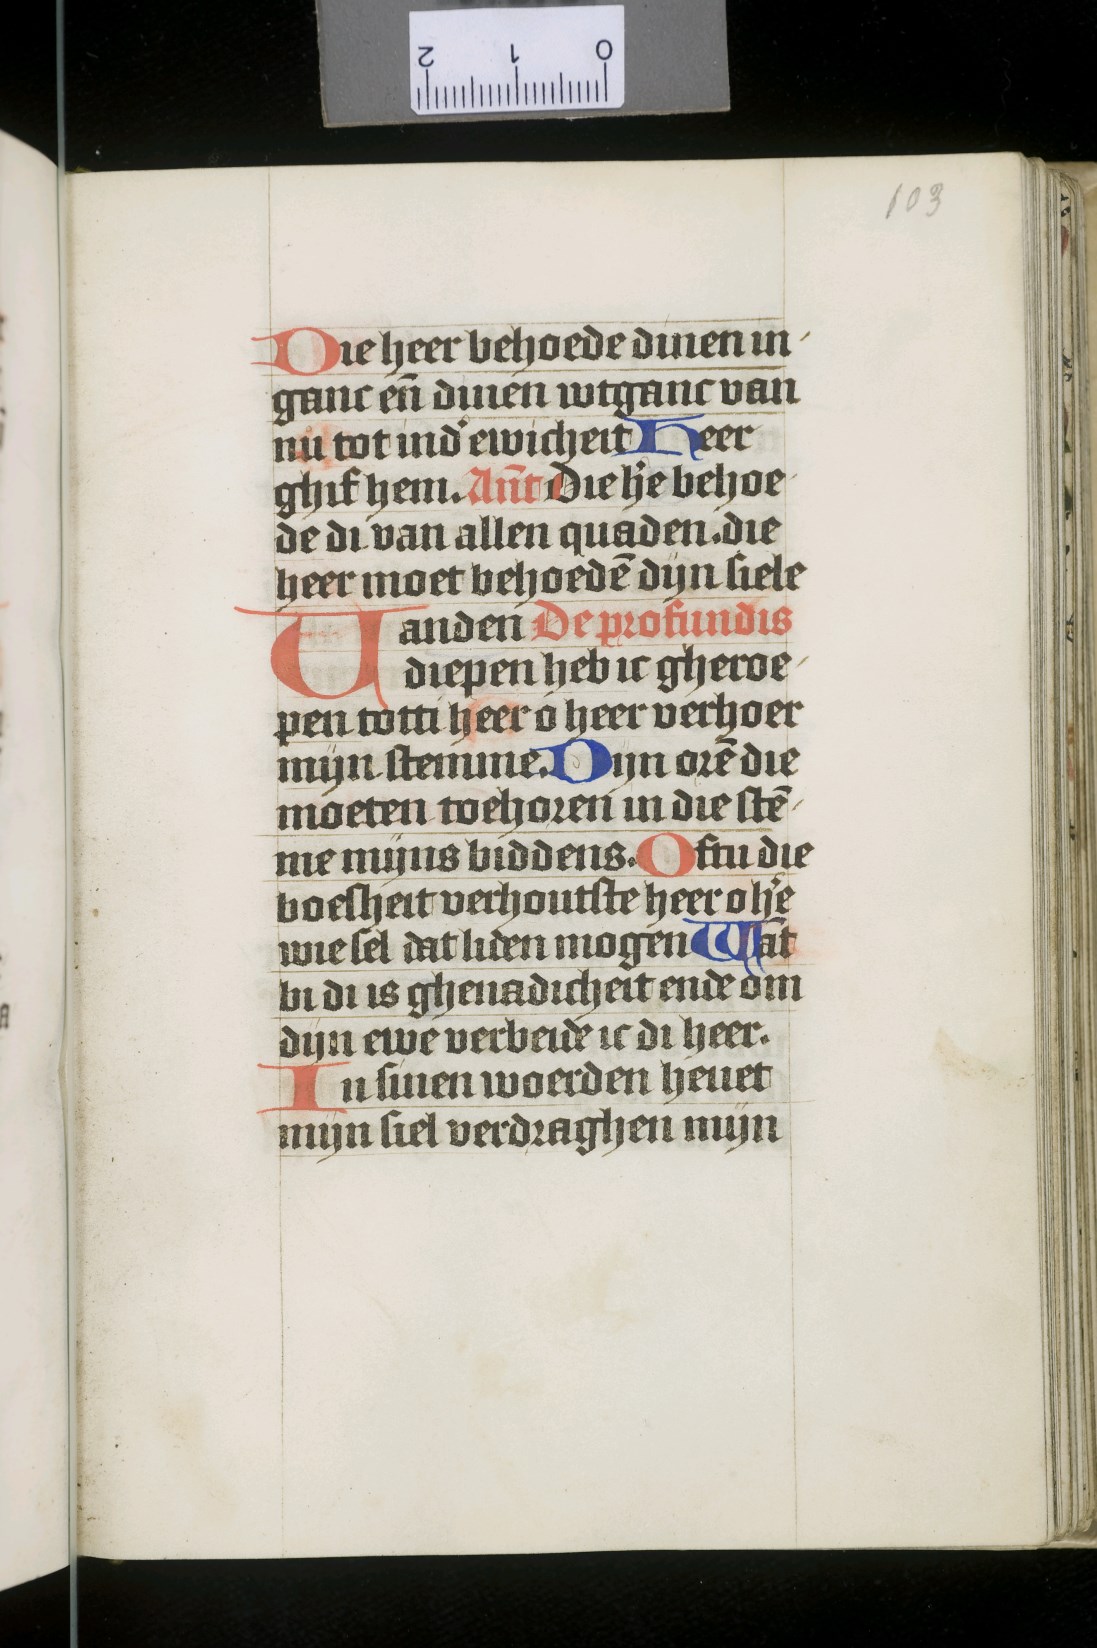 103
Die heer behoede dinen in-
ganc eñ dinen wtganc van
nu tot ind' ewicheit Heer
ghif hem. Añt Die h'e behoe
de di van allen quaden. die
heer moet behoedē dijn siele
Vanden De profundis
diepen heb ic gheroe-
pen totti heer o heer verhoer
mijn stemme. Dijn orē die
moeten toehoren in die stē-
me mijns biddens. Oftu die
boesheit verhoutste heer o h'e
wie sel dat liden mogen Wāt
bi di is ghenadicheit ende om
dijn ewe verbeide ic di heer.
In sinen woerden heuet
mijn siel verdraghen mijn
2 1 0